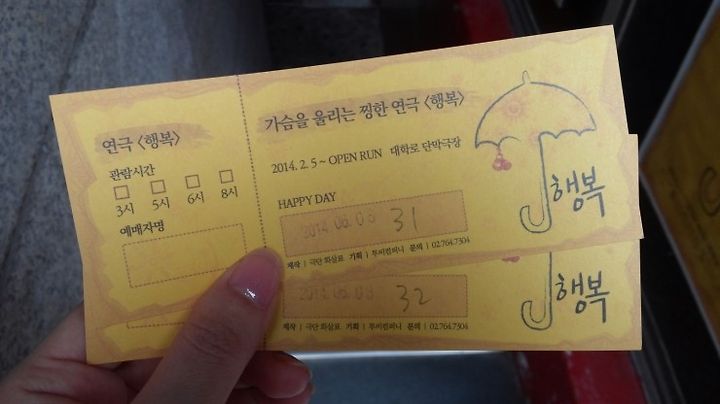 연극 <행복>
관람시간
3시 5시 6시 8시
예매자명
가슴을 울리는 찡한 연극 <행복>
2014. 2. 5 ~ OPEN RUN 대학로 단막극장
HAPPY DAY
2014 06 06 31
제작 | 극단 화살표 기획 | 투비컴퍼니 문의 | 02.764.7304
행복
32
제작 | 극단 화살표 기획 | 투비컴퍼니 문의 | 02.764.7304
행복